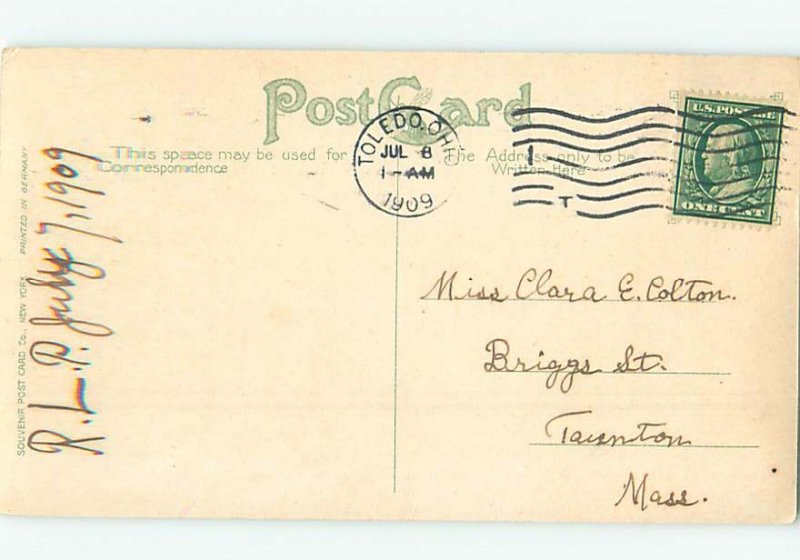 Post Card
This space may be used for
Correspondence
The Address only to be
Written Here
TOLEDO, OHIO
JUL 8
1-AM
1909
1
T
U.S. POSTAGE
ONE CENT
Miss Clara E. Colton.
Briggs St.
Taunton
Mass.
R.L.P. July 7, 1909
SOUVENIR POST CARD CO., NEW YORK PRINTED IN GERMANY